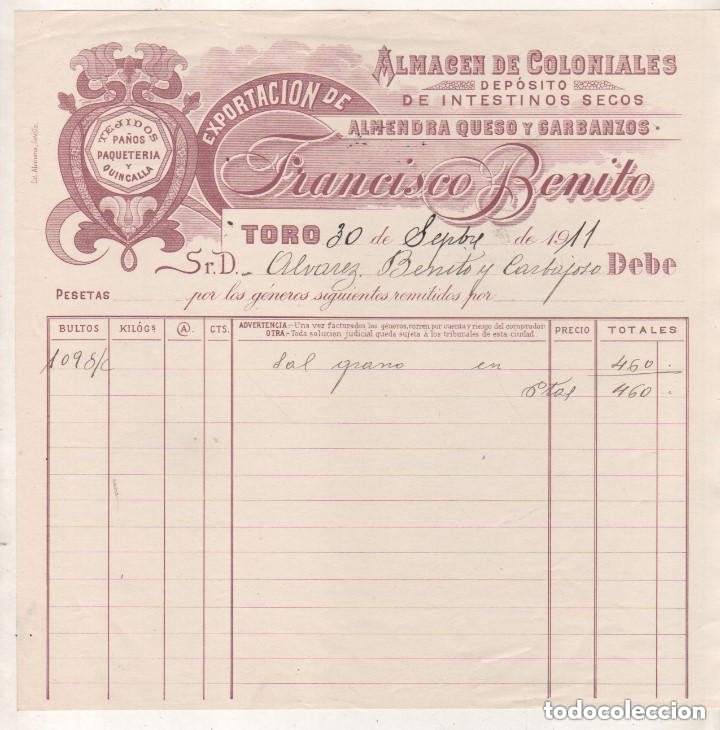 ALMACEN DE COLONIALES
DEPÓSITO
DE INTESTINOS SECOS
EXPORTACION DE
ALMENDRA QUESO Y GARBANZOS.
Francisco Benito
TEJIDOS
PAÑOS
PAQUETERIA
Y
QUINCALLA
TORO 30 de Sepbre de 1911
Sr. D. Alvarez, Benito y Carbajosa Debe
PESETAS por los géneros siguientes remitidos por
BULTOS KILÓGs. A. CTS. ADVERTENCIA:-Una vez facturados los géneros, corren por cuenta y riesgo del comprador PRECIO TOTALES
OTRA:-Toda solucion judicial queda sujeta á los tribunales de esta ciudad.
109 S/C Sal grano en 460.
Ptas 460.
todocoleccion.net